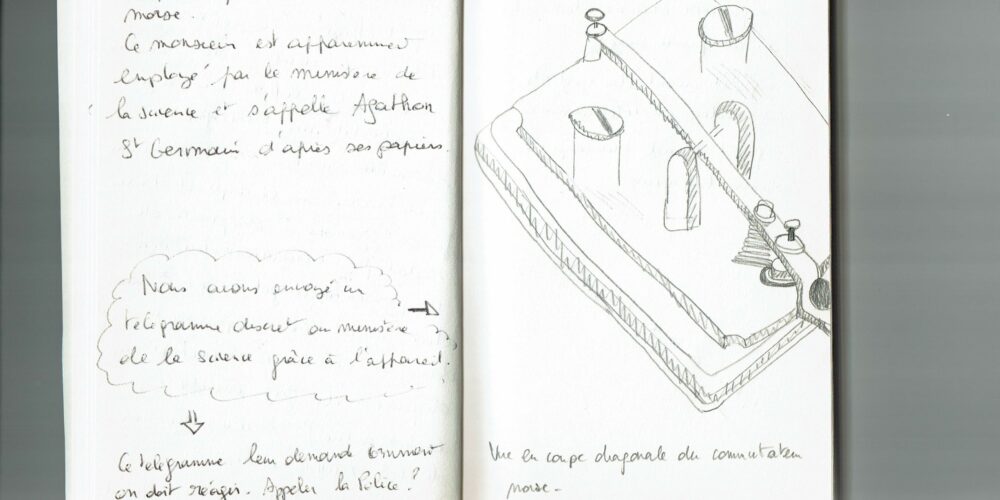 morse.
Ce monsieur est apparemment
employé par le ministère de
la science et s'appelle Agathon
St Germain d'après ses papiers.
Nous avons envoyé un
télégramme discret au ministère
de la science grâce à l'appareil.
Ce télégramme leur demande comment
on doit réagir. Appeler la Police ?
Vue en coupe diagonale du commutateur
morse.